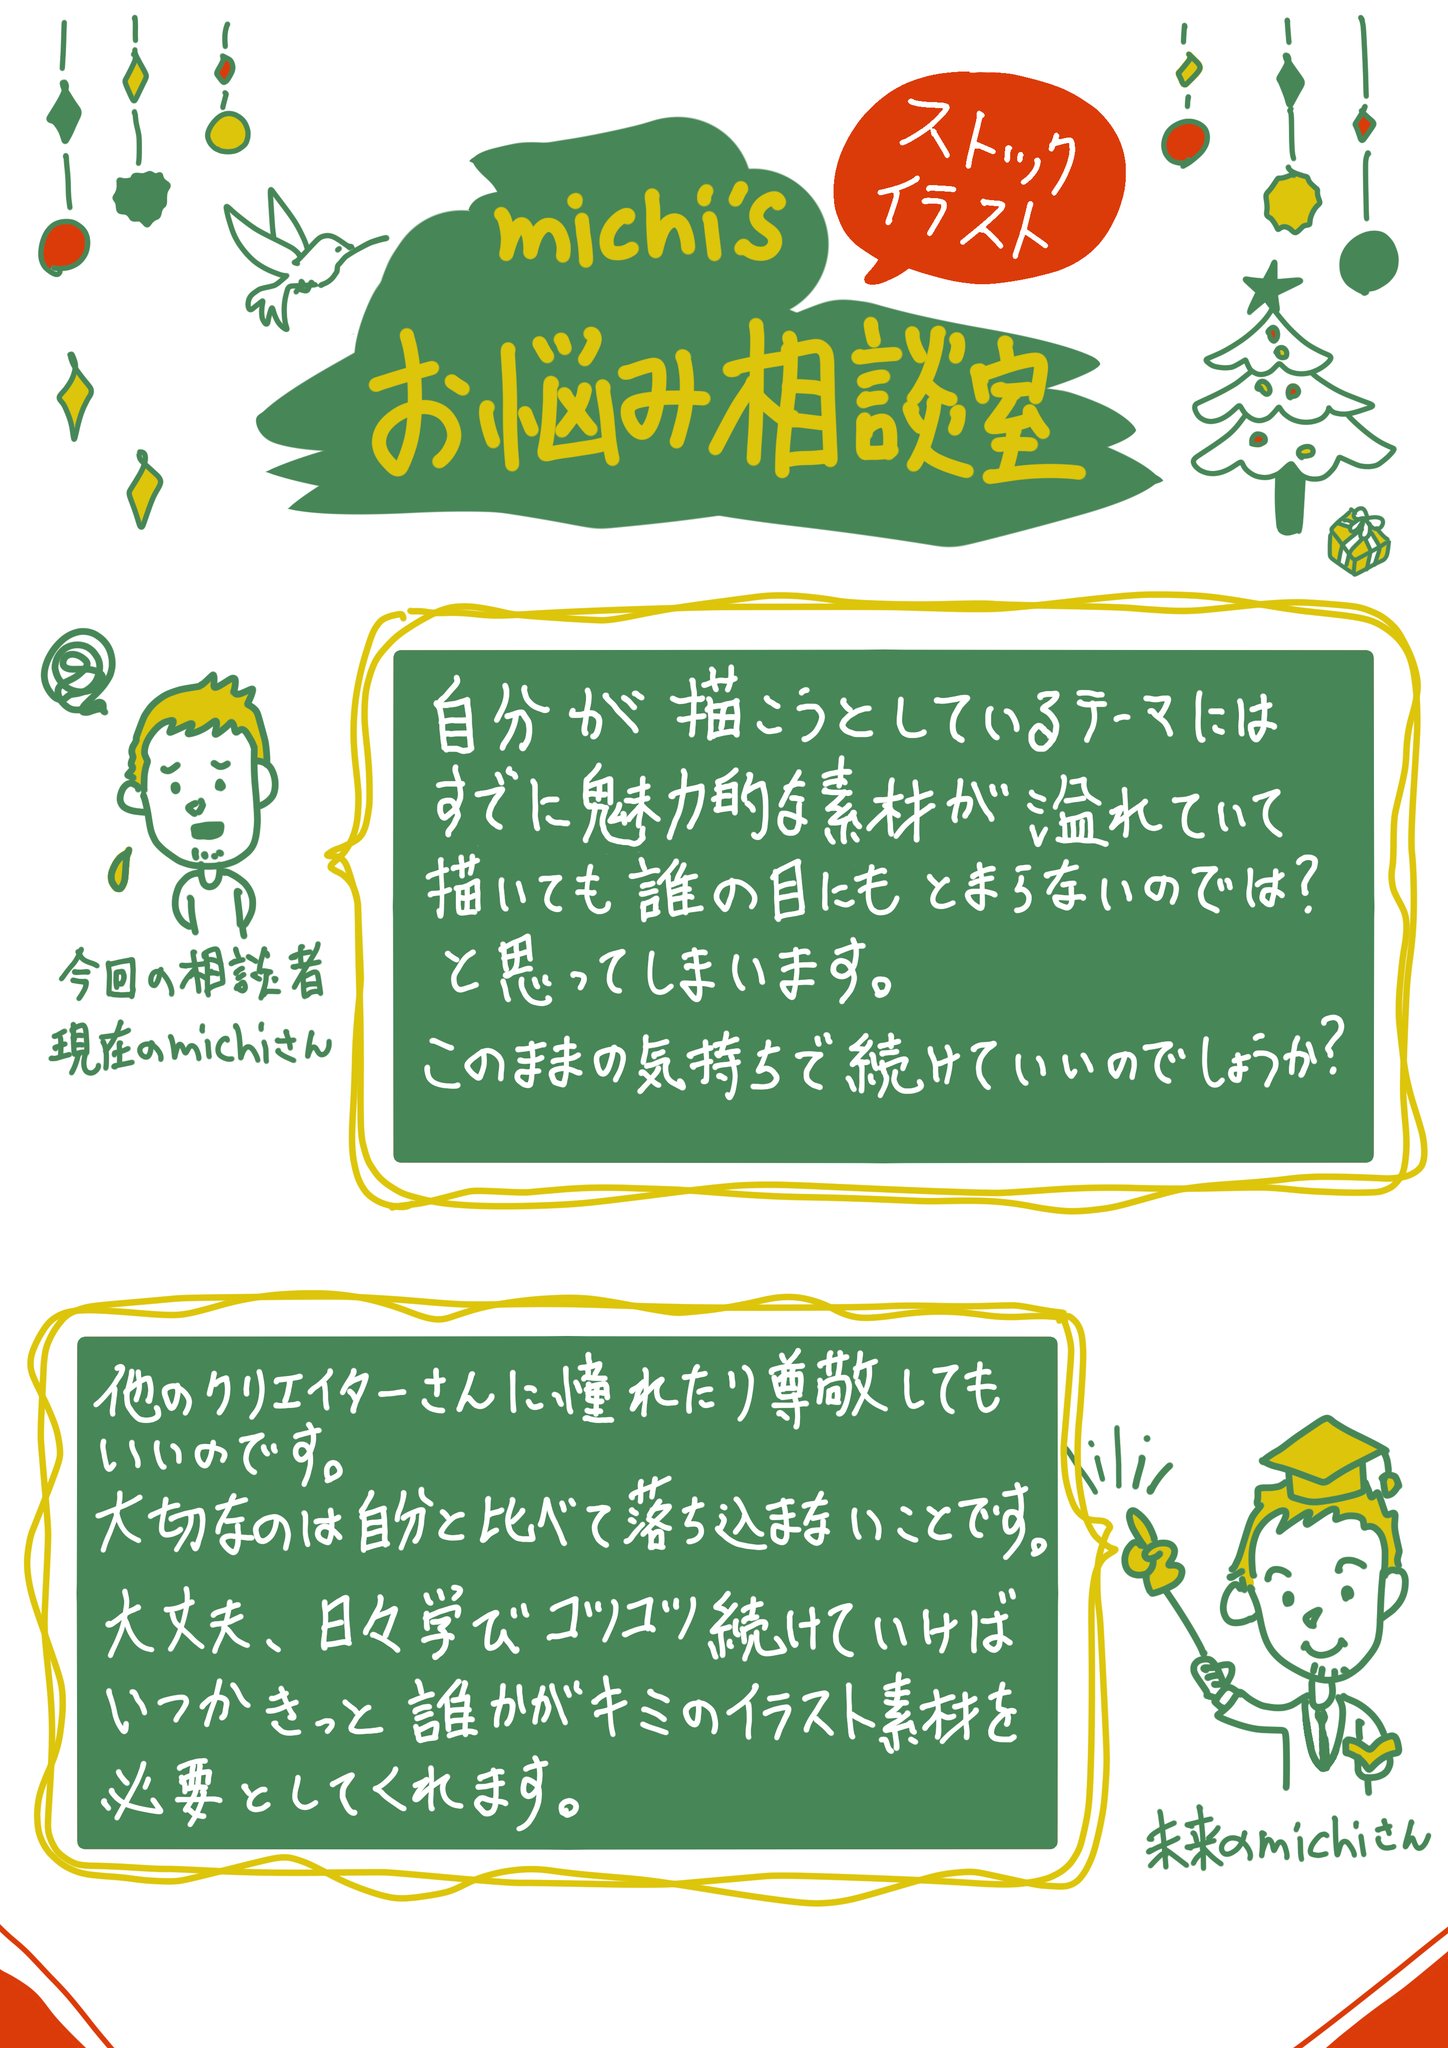 michi's
ストック
イラスト
お悩み相談室
自分が描こうとしているテーマには
すでに魅力的な素材が溢れていて
描いても誰の目にもとまらないのでは?
と思ってしまいます。
このままの気持ちで続けていいのでしょうか?
今回の相談者
現在のmichiさん
他のクリエイターさんに憧れたり尊敬しても
いいのです。
大切なのは自分と比べて落ち込まないことです。
大丈夫、日々学びコツコツ続けていけば
いつかきっと誰かがキミのイラスト素材を
必要としてくれます。
未来のmichiさん